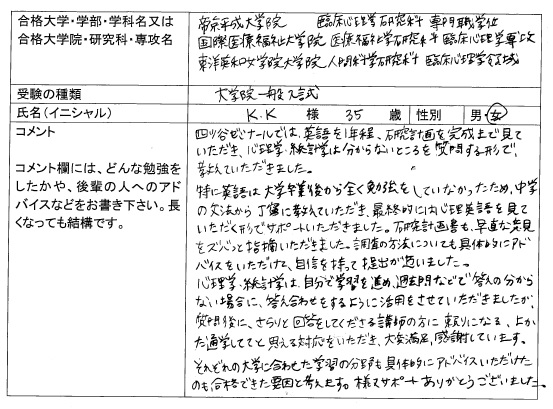 合格大学・学部・学科名又は
合格大学院・研究科・専攻名
帝京平成大学院 臨床心理学研究科 専門職学位
国際医療福祉大学院 医療福祉学研究科 臨床心理学専攻
東洋英和女学院大学院 人間科学研究科 臨床心理学領域
受験の種類
大学院一般入試
氏名(イニシャル)
K.K 様 35 歳 性別 男・女
コメント
コメント欄には、どんな勉強を
したかや、後輩の人へのアド
バイスなどをお書き下さい。長
くなっても結構です。
四ツ谷ゼミナールでは、英語を1年程、研究計画を完成まで見て
いただき、心理学・統計学は分からないところを質問する形で、
教えていただきました。
特に英語は大学卒業後から全く勉強をしていなかったため、中学
の文法から丁寧に教えていただき、最終的に心理英語を見て
いただく形でサポートいただきました。研究計画書も、率直な意見
をズバッと指摘いただきました。調査の方法についても具体的にアド
バイスをいただけて、自信を持って提出が適いました。
心理学・統計学は、自分で学習を進め、過去問などで答えの分から
ない場合に、答え合わせをするように活用をさせていただきましたが、
質問後に、さらりと回答をしてくださる講師の方に頼りになる、よか
た通学してて と思える対応をいただき、大変満足、感謝しています。
それぞれの大学に合わせた学習の分野も具体的にアドバイスいただけた
のも合格できた要因と考えます。様々サポートありがとうございました。